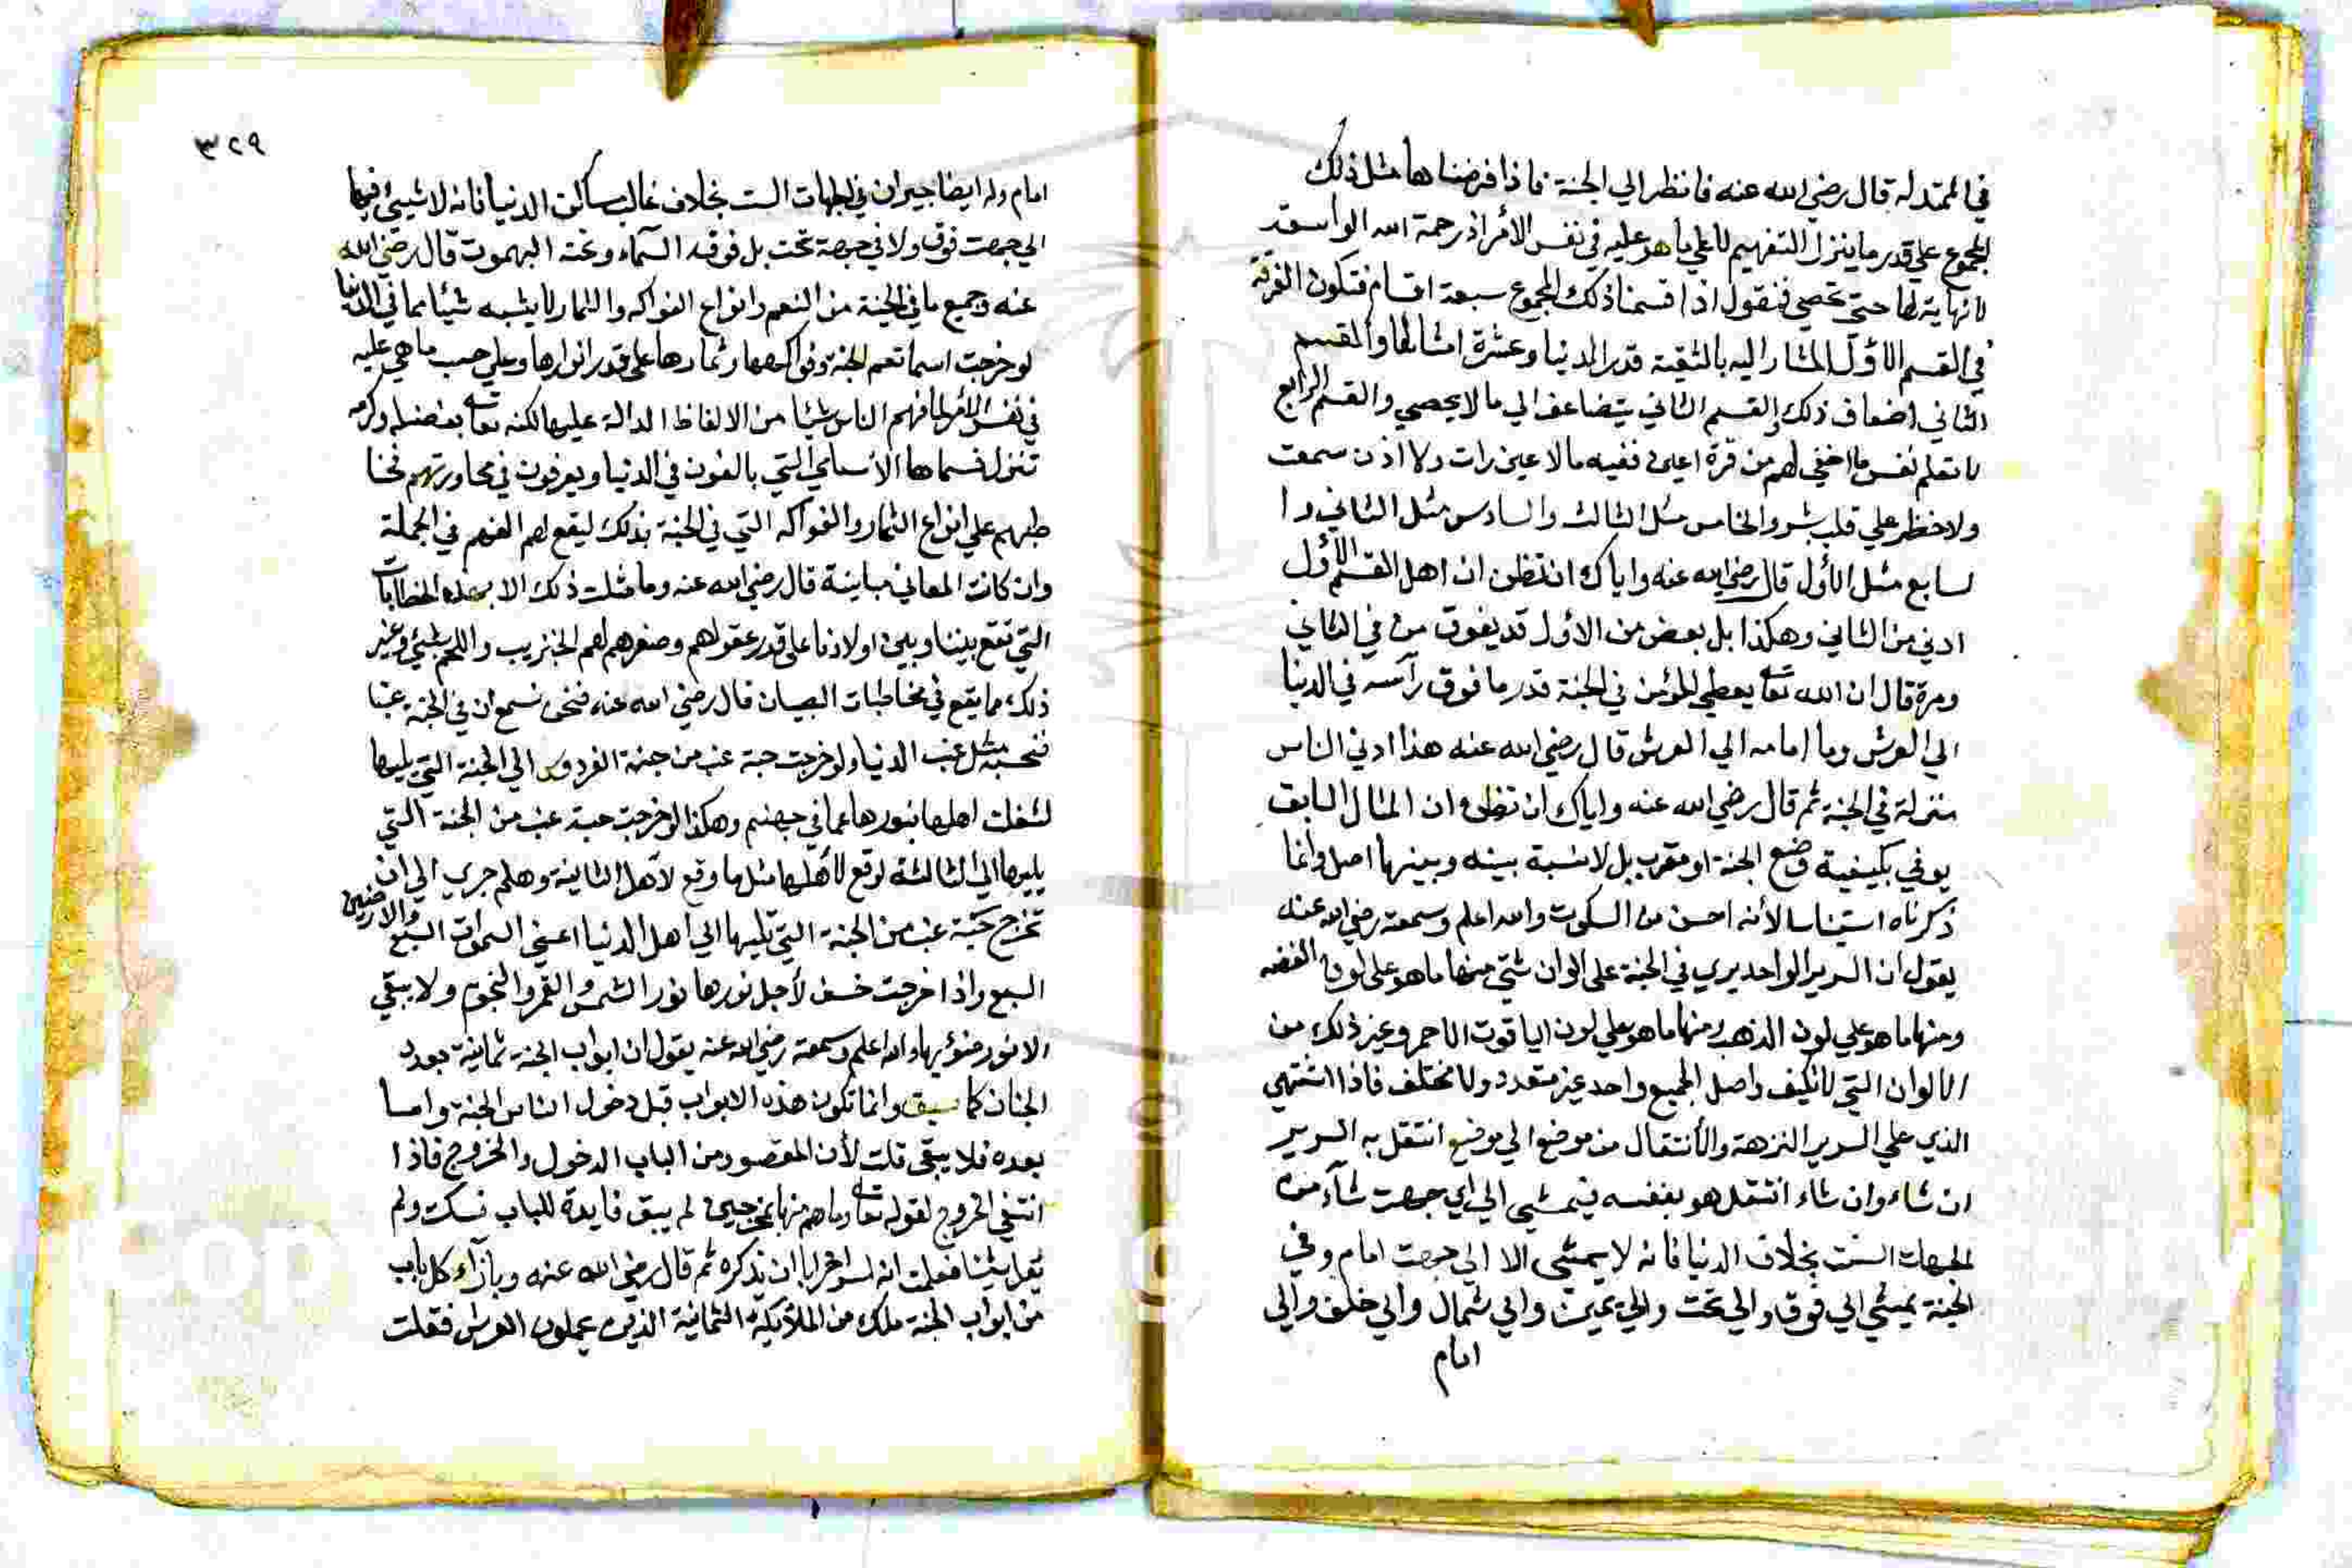 في الممتد له قال رضي الله عنه فانظر الي الجنة فاذا فرضناها مثل ذلك
المجموع علي قدر ما ينزل التفهيم لا علي ما هو عليه في نفس الأمر اذ رحمة الله الواسعة
لا نهاية لها حتي تحصي فنقول اذا قسمنا ذلك المجموع سبعة اقسام فتكون الغرفة
في القسم الأول المشار اليه بالثقبة قدر الدنيا وعشرة امثالها والقسم
الثاني اضعاف ذلك القسم الثاني يتضاعف الي ما لا يحصي والقسم الرابع
لا تعلم نفس ما اخفي لهم من قرة اعين ففيه ما لا عين رات ولا اذن سمعت
ولا خطر علي قلب بشر والخامس مثل الثالث والسادس مثل الثاني وا
لسابع مثل الأول قال رضي الله عنه واياك ان تظن ان اهل القسم الأول
ادني من الثاني وهكذا بل بعض من الاول قد يفوق من في الثاني
ومرة قال ان الله تعا يعطي للمؤمن في الجنة قدر ما فوق رأسه في الدنيا
الي العرش وما امامه الي العرش قال رضي الله عنه هذا ادني الناس
منزلة في الجنة ثم قال رضي الله عنه واياك ان تظن ان المثال السابق
يوفي بكيفية وضع الجنة او مقرب بل لا نسبة بينه وبينها اصل وانما
ذكرناه استيناسا لأنه احسن من السكوت والله اعلم وسمعته رضي الله عنه
يقول ان السرير الواحد يري في الجنة علي الوان شتي منها ما هو علي لون الفضه
ومنها ما هو علي لون الذهب ومنها ما هو علي لون الياقوت الاحمر وغير ذلك من
الالوان التي لا تكيف واصل الجميع واحد غير متعدد ولا مختلف فاذا اشتهي
الذي علي السرير النزهة والأنتقال من موضع الي موضع انتقل به السرير
ان شاء وان شاء انتقل هو بنفسه فيمشي الي اي جهت شآء من
الجهات الست بخلاف الدنيا فانه لا يمشي الا الي جهت امام وفي
الجنة يمشي الي فوق والي تحت والي يمين والي شمال والي خلف والي
امام
٣٢٩
امام وله ايضا جيران في الجهات الست بخلاف غالب مساكن الدنيا فانه لا شيئ فيها
الي جهت فوق ولا في جهة تحت بل فوقه السمآء وتحته البهموت قال رضي الله
عنه وجميع ما في الجنة من النعم وانواع الفواكه والثمار لا يشبه شيئا مما في الدنيا
لو خرجت اسما نعم الجنة وفواكهها وثمارها علي قدر انوارها وعلي حسب ما هي عليه
في نفس الأمر لما فهم الناس شيئا من الالفاظ الدالة عليها لكنه تعا بفضله وكرمه
تنزل فسماها الأسامي التي يالفون في الدنيا ويعرفون في محاورتهم فخا
طبهم علي انواع الثمار والفواكه التي في الجنة بذلك ليقع لهم الفهم في الجملة
وان كانت المعاني مباينة قال رضي الله عنه وما مثلت ذلك الا بهذه الخطابات
التي تقع بيننا وبين اولادنا علي قدر عقولهم وصغرهم لهم الخبز يب واللحم شيئ وغير
ذلك مما يقع في مخاطبات الصبيان قال رضي الله عنه فنحن نسمع ان في الجنة عنبا
فنحسبه مثل عنب الدنيا ولو خرجت حبة عنب من جنة الفردوس الي الجنة التي يليها
لشغلت اهلها بنورها عما في جهنم وهكذا لو خرجت حبة عنب من الجنة التي
يليها الي الثالثة لوقع لأهلها مثل ما وقع لأهل الثانية وهلم جري الي ان
تخرج حبة عنب من الجنة التي تليها الي اهل الدنيا اعني السموات السبع والارضين
السبع واذا خرجت خسف لأجل نورها نور الشمس والقمر والنجوم ولا يبقي
الا نور ضوئها والله اعلم وسمعته رضي الله عنه يقول ان ابواب الجنة ثمانية بعدد
الجنان كما سبق وانما تكون هذه الابواب قبل دخول الناس الجنة واما
بعده فلا يبقي قلت لأن المقصود من الباب الدخول والخروج فاذا
انتفي الخروج لقوله تعا وما هم منها بمخرجين لم يبق فايدة للباب فسكت ولم
يقل شيئا فعلمت انه لسر اخر ابا ان يذكره ثم قال رضي الله عنه وبازآء كل باب
من ابواب الجنة ملك من الملآئكة الثمانية الذين يحملون العرش فقلت